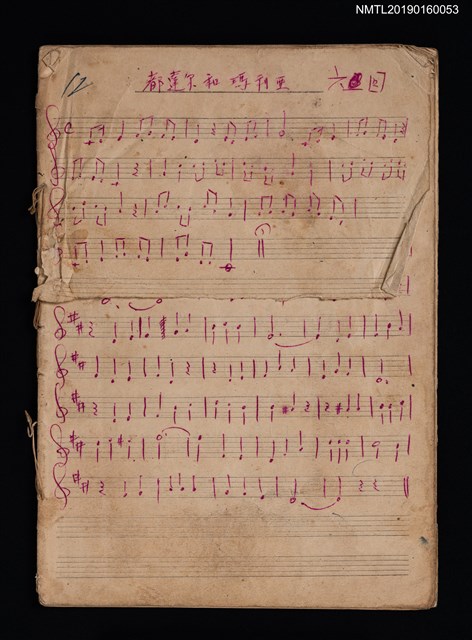 NMTL20190160053
12
都達尔和瑪利亜 六回